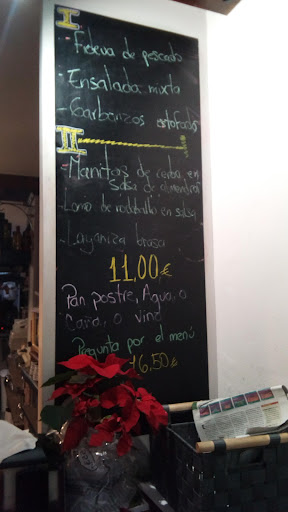 I
- Fideva de pescado
- Ensalada mixta
- Garbanzos estofados
II
- Manitos de cerdo en
salsa de almendras
- Lomo de rodaballo en salsa
- Loganiza brasa
11,00 €
Pan postre, Agua, o
Caña, o vino
Pregunta por el menú
16,50